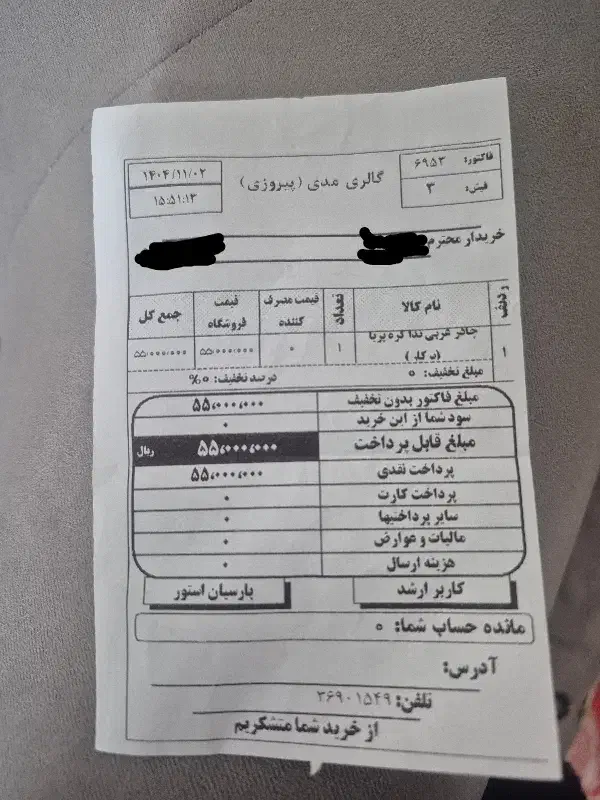 فاکتور: ۶۹۵۲
فیش: ۳
گالری مدی (پیروزی)
۱۴۰۴/۱۱/۰۲
۱۵:۵۱:۱۳
خریدار محترم
ردیف نام کالا تعداد قیمت مصرف کننده قیمت فروشگاه جمع کل
۱ چادر عربی ندا کره پریا ۱ ۰ ۵۵٬۰۰۰٬۰۰۰ ۵۵٬۰۰۰٬۰۰۰
مبلغ تخفیف: ۰ درصد تخفیف: ۰%
مبلغ فاکتور بدون تخفیف ۵۵,۰۰۰,۰۰۰
سود شما از این خرید ۰
مبلغ قابل پرداخت ۵۵,۰۰۰,۰۰۰ ریال
پرداخت نقدی ۵۵,۰۰۰,۰۰۰
پرداخت کارت ۰
سایر پرداختیها ۰
مالیات و عوارض ۰
هزینه ارسال ۰
کاربر ارشد پارسیان استور
مانده حساب شما: ۰
آدرس:
تلفن: ۳۶۹۰۱۵۴۹
از خرید شما متشکریم